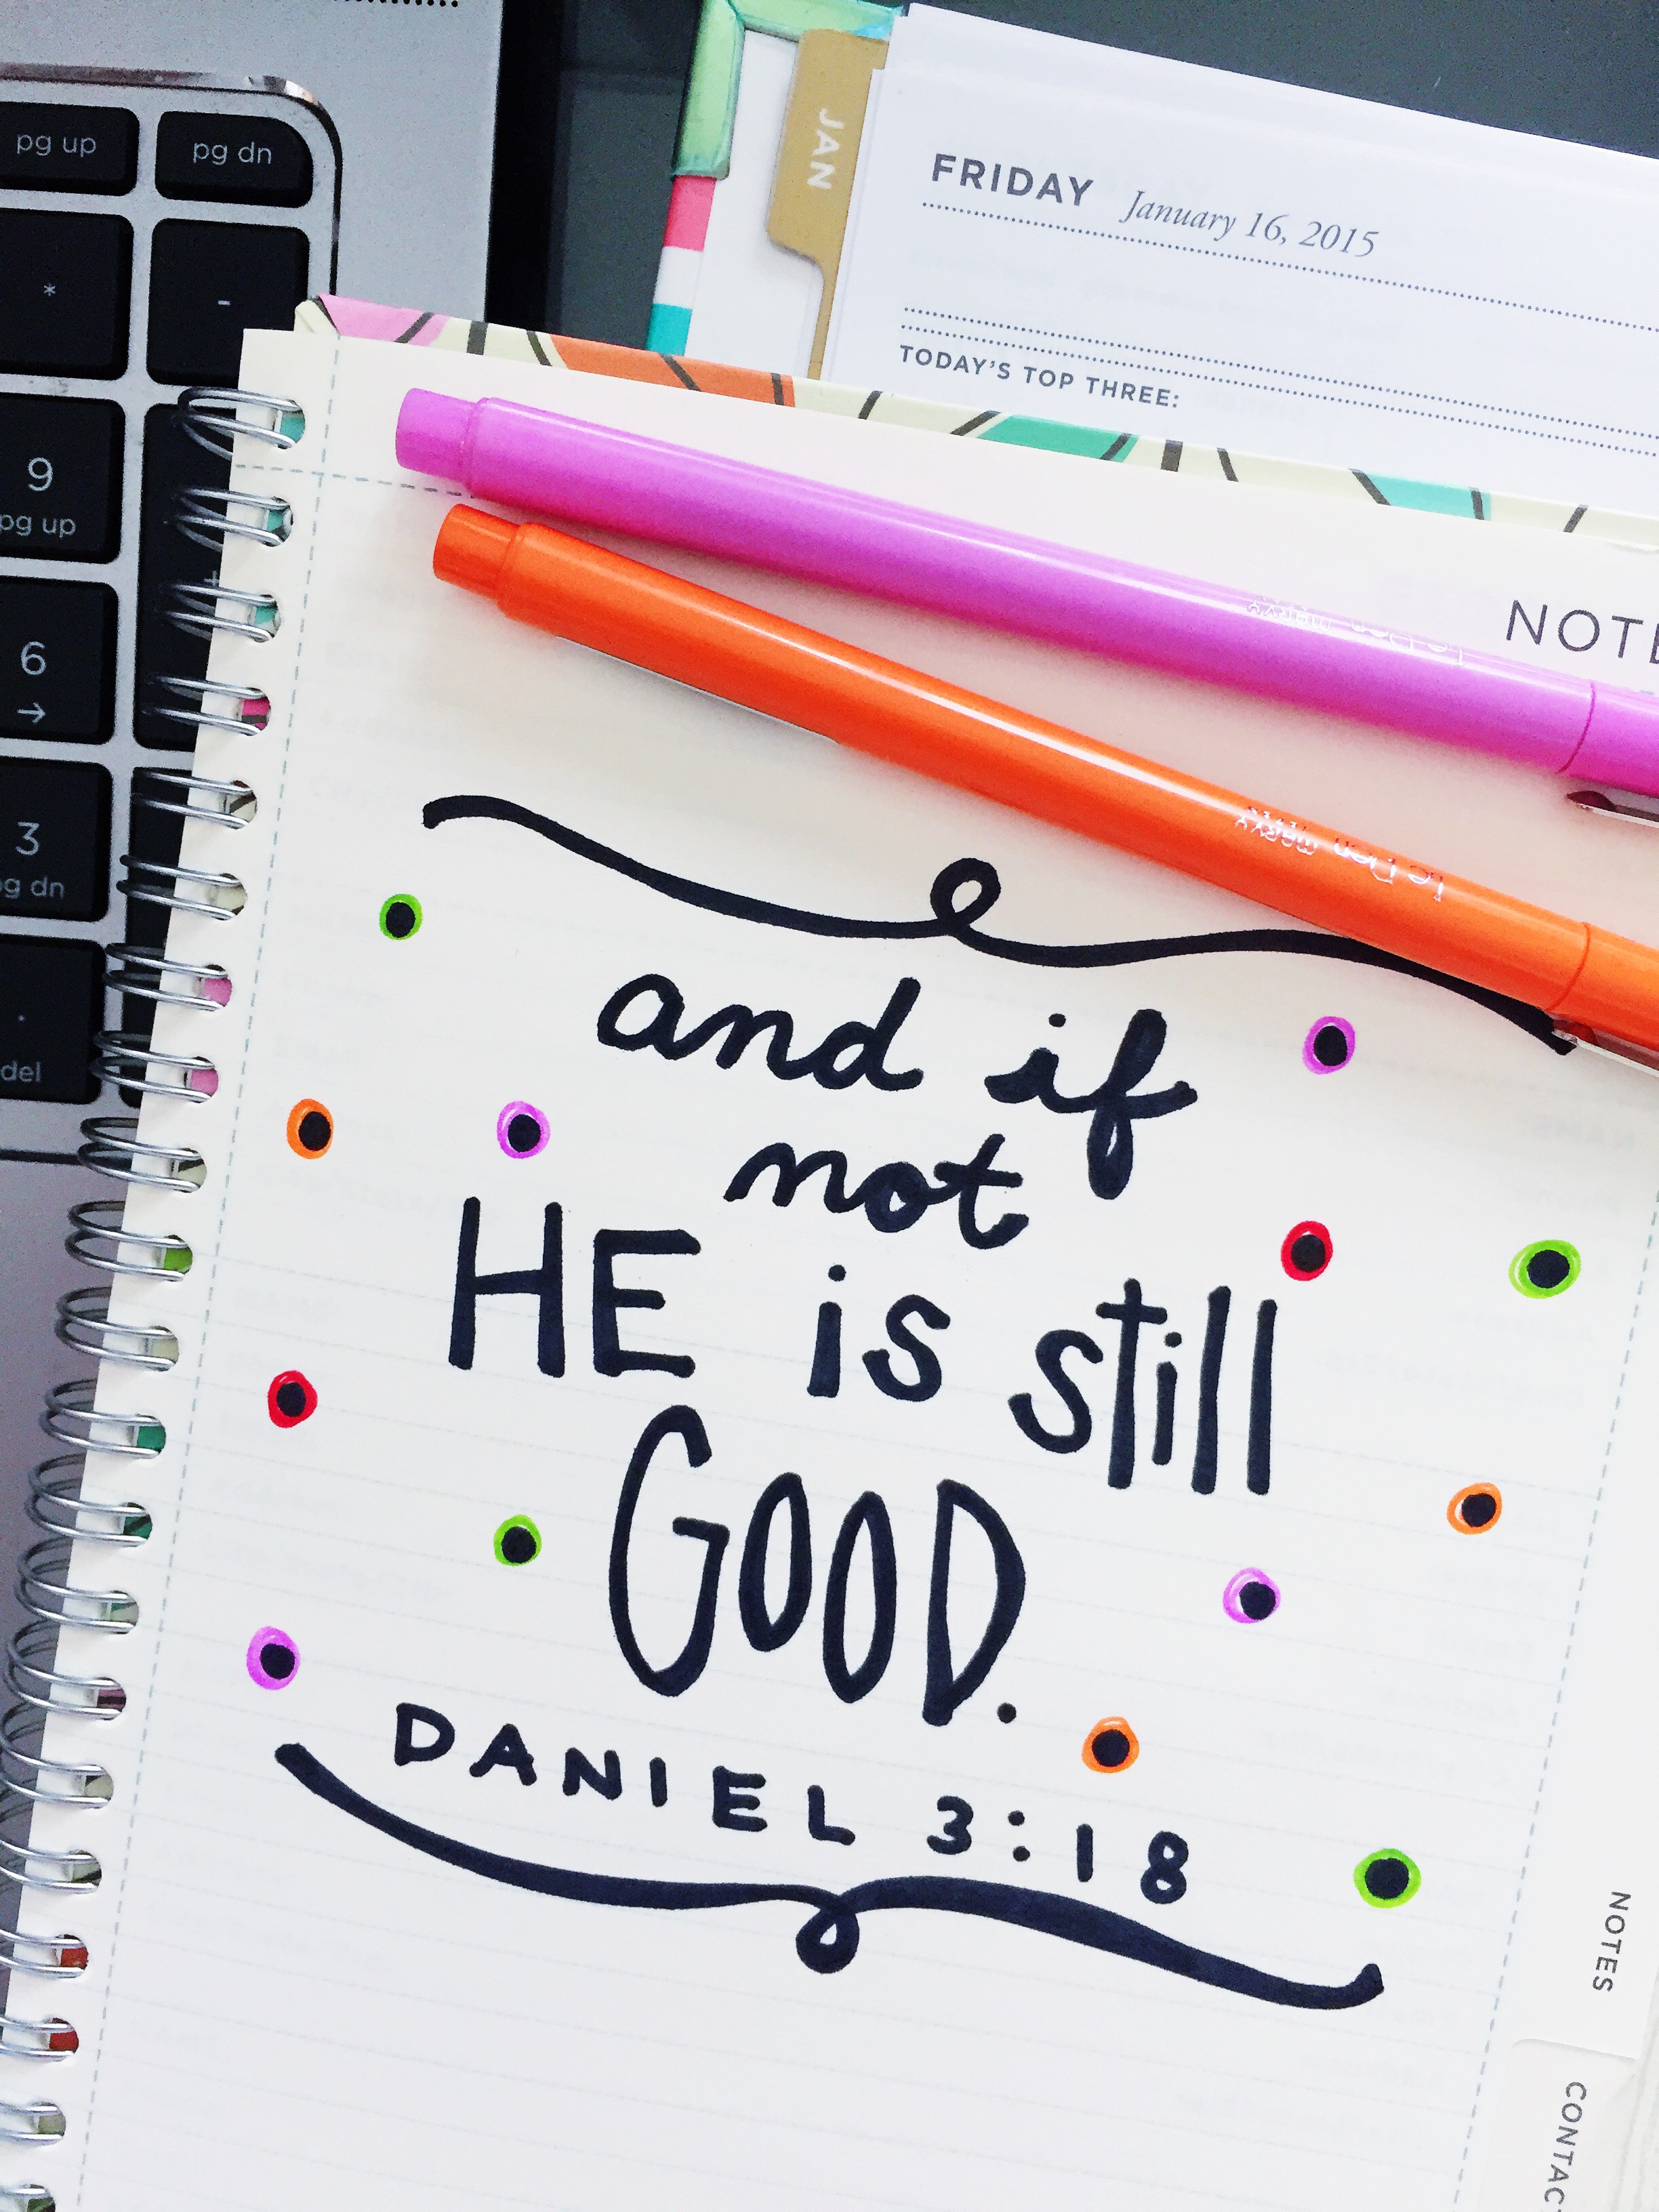 pg up
pg dn
*
-
9
pg up
+
6
→
3
pg dn
.
del
JAN
FRIDAY January 16, 2015
TODAY'S TOP THREE:
Le Pen MARVY
Le Pen MARVY
and if
not
HE is still
GOOD.
DANIEL 3:18
NOTES